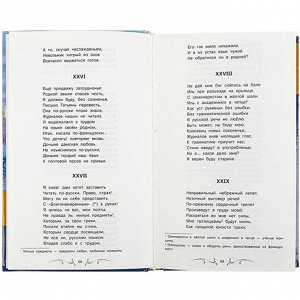 А те, скучая наслажденьем,
Невольник хитрый из оков
Всечасно вырваться готов.
XXVI
Ещё предвижу затрудненья:
Родной земли спасая честь,
Я должен буду, без сомненья,
Письмо Татьяны перевесть.
Она по-русски плохо знала,
Журналов наших не читала
И выражалася с трудом
На языке своём родном,
Итак, писала по-французски...
Что делать! повторяю вновь:
Доныне дамская любовь
Не изъяснялася по-русски,
Доныне гордый наш язык
К почтовой прозе не привык.
XXVII
Я знаю: дам хотят заставить
Читать по-русски. Право, страх!
Могу ли их себе представить
С «Благонамеренным» в руках!
Я шлюсь на вас, мои поэты;
Не правда ль: милые предметы,
Которым, за свои грехи,
Писали втайне вы стихи,
Которым сердце посвящали,
Не все ли, русским языком
Владея слабо и с трудом,
Его так мило искажали,
И в их устах язык чужой
Не обратился ли в родной?
XXVIII
Не дай мне бог сойтись на бале
Иль при разъезде на крыльце
С семинаристом в жёлтой шали
Иль с академиком в чепце!
Как уст румяных без улыбки,
Без грамматической ошибки
Я русской речи не люблю.
Быть может, на беду мою,
Красавиц новых поколенье,
Журналов вняв молящий глас,
К грамматике приучит нас;
Стихи введут в употребленье;
Но я... какое дело мне?
Я верен буду старине.
XXIX
Неправильный, небрежный лепет,
Неточный выговор речей
По-прежнему сердечный трепет
Произведут в груди моей;
Раскаяться во мне нет силы,
Мне галлицизмы будут милы,
Как прошлой юности грехи,